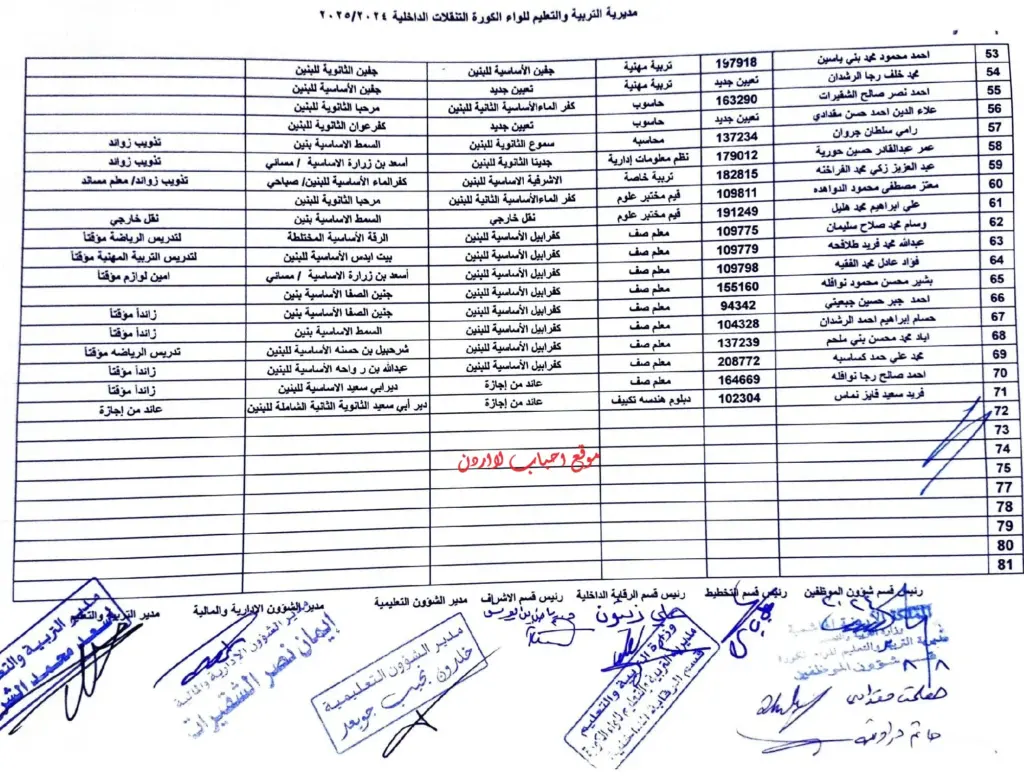 مديرية التربية والتعليم للواء الكورة التنقلات الداخلية ٢٠٢٥/٢٠٢٤
53 احمد محمود محمد بني ياسين 197918 تربية مهنية جفين الأساسية للبنين جفين الثانوية للبنين
54 محمد خلف رجا الرشدان تعيين جديد تربية مهنية تعيين جديد جفين الأساسية للبنين
55 احمد نصر صالح الشقيرات 163290 حاسوب كفر الماءالأساسية الثانية للبنين مرحبا الثانوية للبنين
56 علاء الدين احمد حسن مقدادي تعيين جديد حاسوب تعيين جديد كفرعوان الثانوية للبنين
57 رامي سلطان جروان 137234 محاسبه سموع الثانوية للبنين السمط الاساسية بنين تذويب زوائد
58 عمر عبدالقادر حسين حورية 179012 نظم معلومات إدارية جديتا الثانوية للبنين أسعد بن زرارة الاساسية / مسائي تذويب زوائد
59 عبد العزيز زكي محمد الفراخنه 182815 تربية خاصة الاشرفية الاساسية للبنين كفرالماء الأساسية للبنين/ صباحي تذويب زوائد/ معلم مساند
60 معتز مصطفى محمود الدواهده 109811 قيم مختبر علوم كفر الماءالأساسية الثانية للبنين مرحبا الثانوية للبنين
61 علي ابراهيم محمد هليل 191249 قيم مختبر علوم نقل خارجي السمط الاساسية بنين نقل خارجي
62 وسام محمد صلاح سليمان 109775 معلم صف كفرابيل الأساسية للبنين الرقة الأساسية المختلطة لتدريس الرياضة مؤقتاً
63 عبدالله محمد فريد طلافحه 109779 معلم صف كفرابيل الأساسية للبنين بيت ايدس الأساسية للبنين لتدريس التربية المهنية مؤقتاً
64 فؤاد عادل محمد الفقيه 109798 معلم صف كفرابيل الأساسية للبنين أسعد بن زرارة الاساسية / مسائي امين لوازم مؤقتاً
65 بشير محسن محمود نوافله 155160 معلم صف كفرابيل الأساسية للبنين جنين الصفا الأساسية بنين
66 احمد جبر حسين جبعيتي 94342 معلم صف كفرابيل الأساسية للبنين جنين الصفا الأساسية بنين زائداً مؤقتاً
67 حسام إبراهيم احمد الرشدان 104328 معلم صف كفرابيل الأساسية للبنين السمط الاساسية بنين زائداً مؤقتاً
68 اياد محمد محسن بني ملحم 137239 معلم صف كفرابيل الأساسية للبنين شرحبيل بن حسنه الأساسية للبنين تدريس الرياضه مؤقتاً
69 محمد علي حمد كساسبه 208772 معلم صف كفرابيل الأساسية للبنين عبدالله بن رواحه الأساسية للبنين زائداً مؤقتاً
70 احمد صالح رجا نوافله 164669 معلم صف عائد من إجازة ديرابي سعيد الاساسية للبنين زائداً مؤقتاً
71 فريد سعيد فايز نماس 102304 دبلوم هندسه تكييف عائد من إجازة دير أبي سعيد الثانوية الثانية الشاملة للبنين عائد من إجازة
72
73
74
75
موقع احباب لااردن
77
78
79
80
81
رئيس قسم شؤون الموظفين رئيس قسم التخطيط رئيس قسم الرقابة الداخلية رئيس قسم الاشراف مدير الشؤون التعليمية مدير الشؤون الإدارية والمالية مدير التربية والتعليم
وزارة التربية والتعليم
قسم الرقابة الداخلية
مدير الشؤون التعليمية
خلدون نجيب جويعد
مدير الشؤون الإدارية والمالية
إيمان نصر الشقيرات
مدير التربية والتعليم